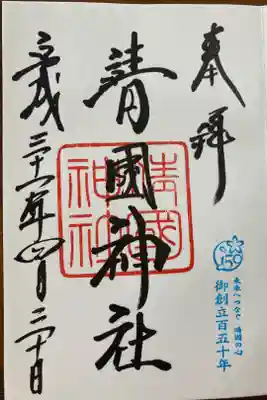 奉拝
靖國神社
靖國
神社
平成三十一年四月二十日
150
未来へつなぐ 靖國の心
御創立百五十年